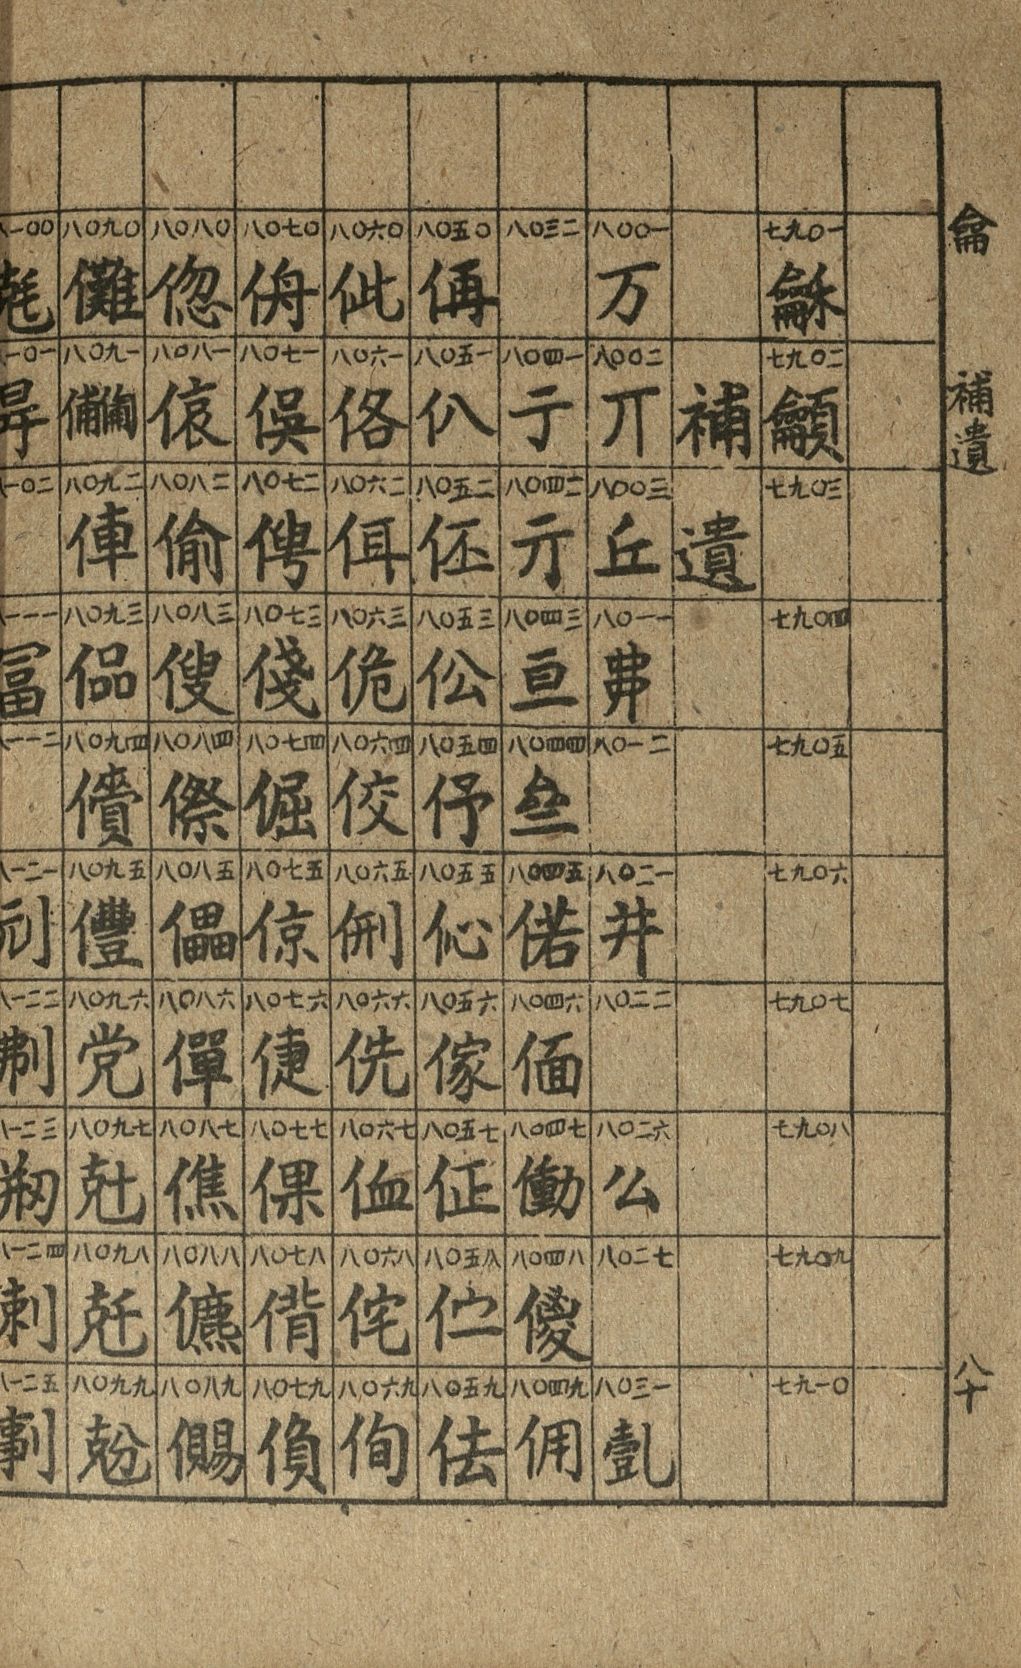 龠
補遺
八十
七九〇一 龢
七九〇二 龥
七九〇三
七九〇四
七九〇五
七九〇六
七九〇七
七九〇八
七九〇九
七九一〇
補遺
八〇〇一 万
八〇〇二 丌
八〇〇三 丘
八〇一一
八〇一二
八〇二一 井
八〇二二
八〇二六 公
八〇二七
八〇三一
八〇三二
八〇四一 亍
八〇四二
八〇四三 亘
八〇四四
八〇四五 偌
八〇四六 偭
八〇四七 働
八〇四八 傻
八〇四九 佣
八〇五〇 侢
八〇五一 仈
八〇五二 伾
八〇五三 伀
八〇五四 伃
八〇五五 伈
八〇五六 傢
八〇五七 佂
八〇五八 伫
八〇五九 佉
八〇六〇 佌
八〇六一 佫
八〇六二 佴
八〇六三 佹
八〇六四 佼
八〇六五 侀
八〇六六 侁
八〇六七 侐
八〇六八 侘
八〇六九 侚
八〇七〇 侜
八〇七一 俁
八〇七二 俜
八〇七三 俴
八〇七四 倔
八〇七五 倞
八〇七六 倢
八〇七七 倮
八〇七八 偝
八〇七九 偩
八〇八〇 偬
八〇八一 偯
八〇八二 偷
八〇八三 傁
八〇八四 傺
八〇八五 儡
八〇八六 僤
八〇八七 僬
八〇八八 儦
八〇八九 儩
八〇九〇 儺
八〇九一
八〇九二 俥
八〇九三
八〇九四
八〇九五
八〇九六 党
八〇九七 兙
八〇九八 兛
八〇九九 兝